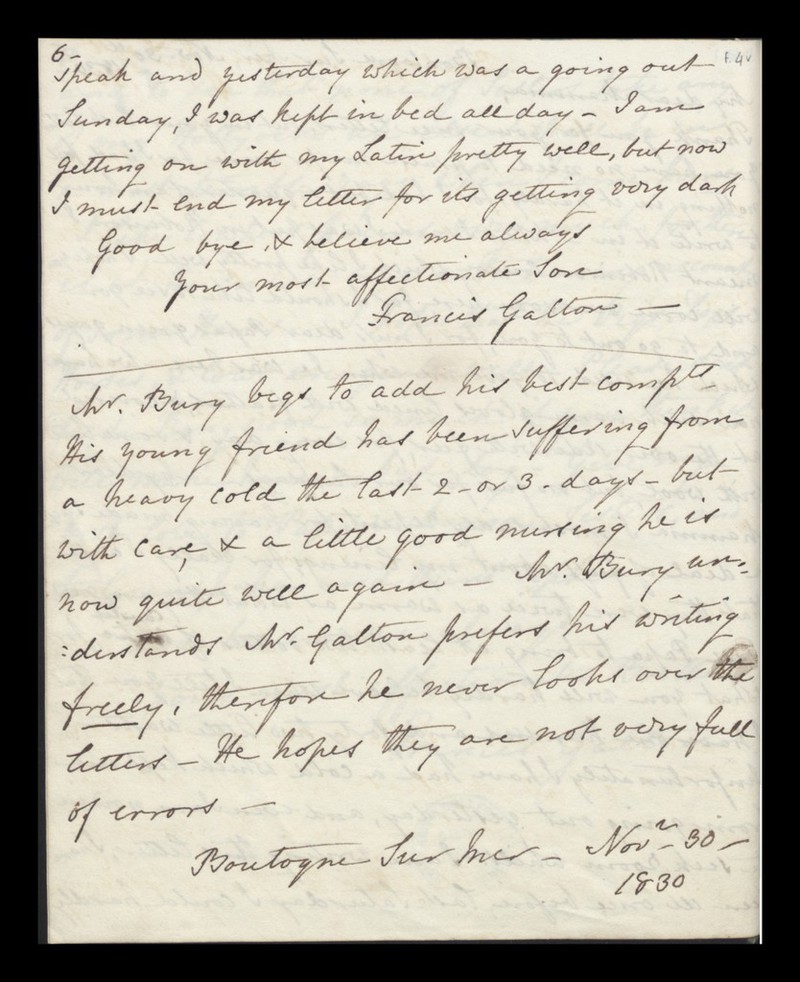 6-
f. 4v
speak and yesterday which was a going out
Sunday, I was kept in bed all day - I am
getting on with my Latin pretty well, but now
I must end my letter for its getting very dark
Good bye, & believe me always
Your most affectionate Son
Francis Galton —
Mr. Bury begs to add his best compts -
His young friend has been suffering from
a heavy cold the last 2 - or 3 - days - but
with care, & a little good nursing he is
now quite well again — Mr. Bury un=
:derstands Mr. Galton prefers his writing
freely, therefore he never looks over the
letters - He hopes they are not very full
of errors —
Boulogne Sur Mer - Novr - 30 -
1830